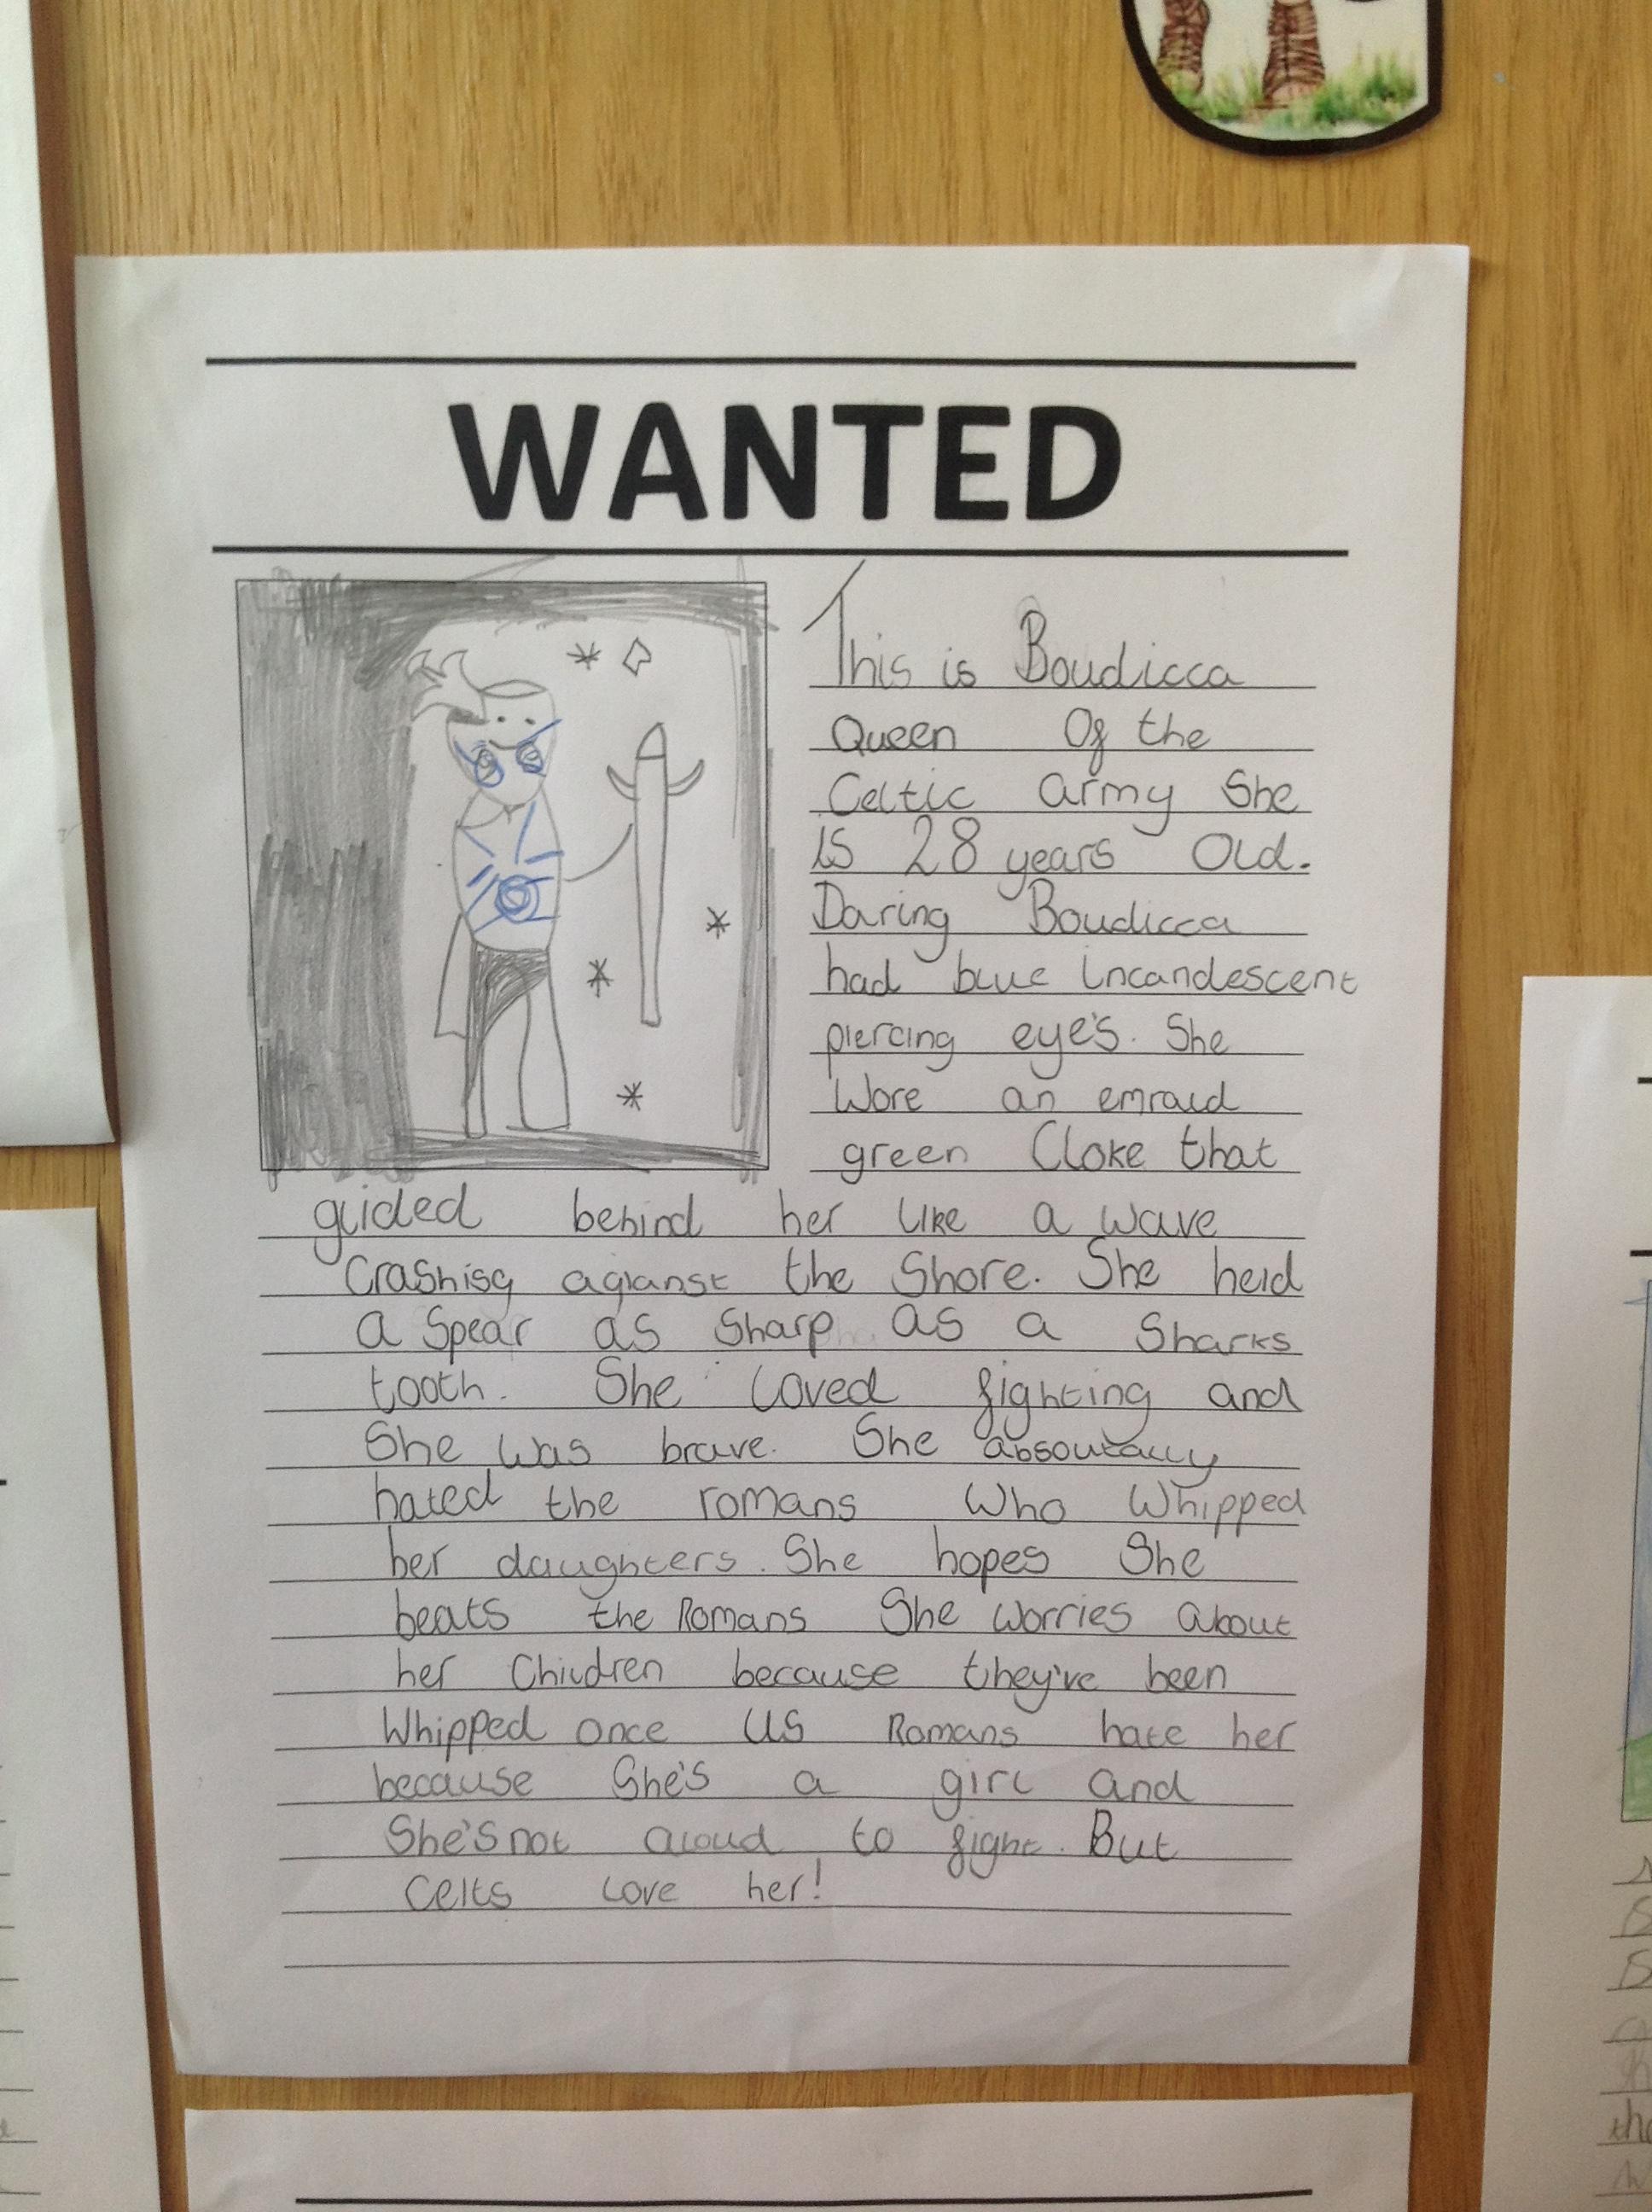 WANTED
This is Boudicca
Queen Of the
Celtic army She
is 28 years Old.
Daring Boudicca
had blue incandescent
piercing eye's. She
Wore an emrald
green Cloke that
glided behind her like a wave
Crashisg agianst the Shore. She held
a Spear as Sharp as a Sharks
tooth. She loved fighting and
She was brave. She absoutally
hated the romans Who Whipped
her daughters. She hopes She
beats the Romans She worries about
her Children because they've been
Whipped once US Romans hate her
because She's a girl and
She's not aloud to fight. But
Celts love her!